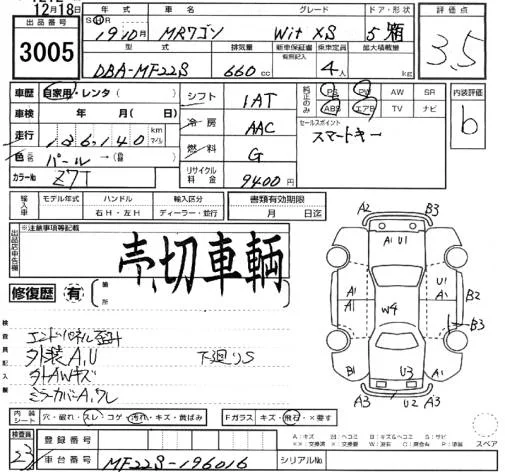 12月18日
出品番号
3005
年式
車名
グレード
ドア・形状
SH
19 10月
MRワゴン
Wit XS
5 箱
型式
排気量
新車保証書
有際記入
乗車定員
最大積載量
DBA-MF22S
660 cc
4人
kg
評価点
3.5
車歴
自家用・レンタ ( )
車検
年 月( 日)
走行
136,140
km
マイル
色
パール → (替)
カラーNo
Z7T
シフト
1AT
冷房
AAC
燃料
G
リサイクル料金
9400円
純正のみ
PS PW AW SR
ABS エアB TV ナビ
セールスポイント
スマートキー
内装評価
b
輸入車
モデル年式
ハンドル
右H・左H
輸入区分
ディーラー・並行
書類有効期限
月 日迄
出品店申告欄
※注意事項等記載
売切車両
修復歴 有
箇所
検査員記入欄
エンドパネル歪み
外装A.U
外AWキズ
ミラーカバーA.ワレ
下廻りS
A2 B3
A1 U1
A1 A1
U1 A1
B2
W4
B3
B1
U3
A3 U2 A3
内装シート
穴・破れ・スレ・コゲ・汚れ・キズ・黄ばみ
Fガラス キズ・飛石・×要す
検査員
23
登録番号
車台番号
MF22S-196016
シリアルNo.
A:キズ
B:キズ&ヘコミ
S:サビ
スペア